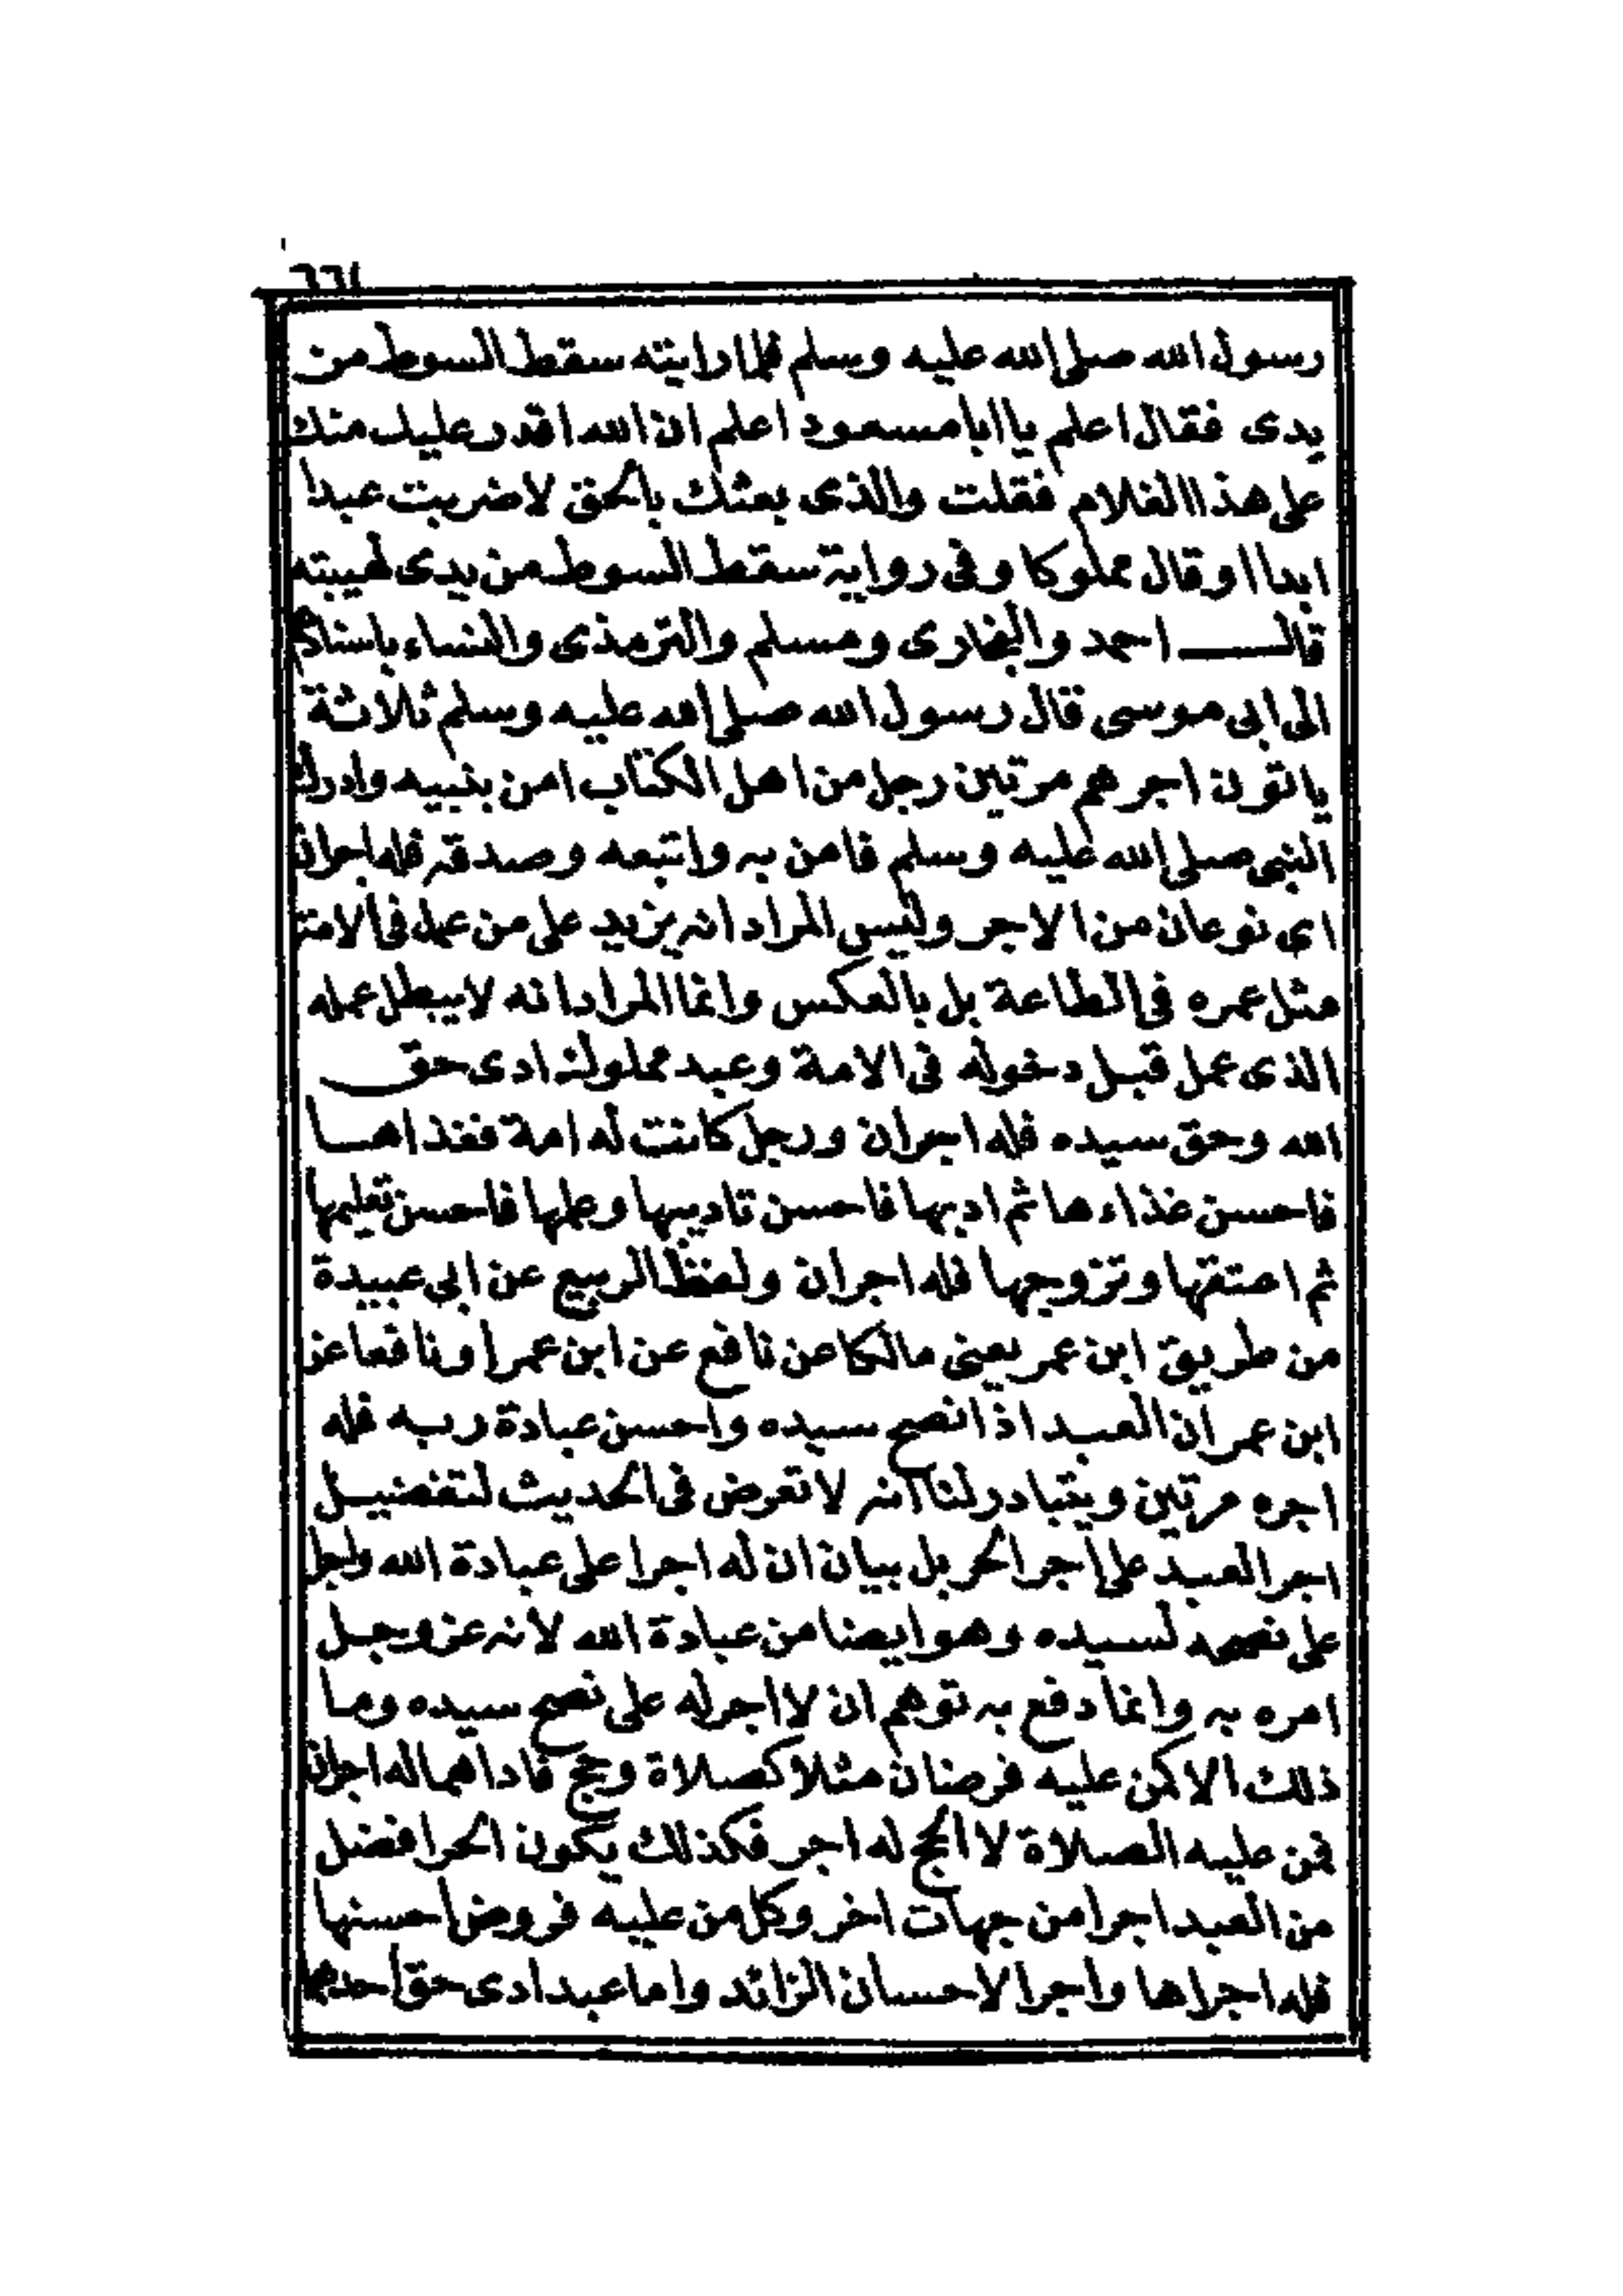 ٦٦١
رسول الله صلى الله عليه وسلم فلما رايته سقط السوط من
يدى فقال اعلم يا ابا مسعود اعلم ان الله اقدر عليك منك
على هذا الغلام فقلت والذى بعثك بالحق لا ضربت عبدا
ابدا او قال مملوكا وفى رواية سقط السوط من يدى لهيبته
قال احمد والبخارى ومسلم والترمذى والنساء باسنادهم
الى ابى موسى قال رسول الله صلى الله عليه وسلم ثلاثة
ياتون اجرهم مرتين رجل من اهل الكتاب امن بنبيه وادرك
النبى صلى الله عليه وسلم فامن به واتبعه وصدقه فله اجران
اى نوعان من الاجر وليس المراد انه يزيد على من عمل فى الامة
مثل عمره فى الطاعة بل بالعكس وانما المراد انه لا يبطل عمله
الذى عمل قبل دخوله فى الامة وعبد مملوك ادى حق
الله وحق سيده فله اجران ورجل كانت له امة فغذاهـا
فاحسن غذاءها ثم ادبها فاحسن تاديبها وعلمها فاحسن تعليمها
ثم اعتقها وتزوجها فله اجران ولفظ الربيع عن ابى عبيدة
من طريق ابن عمر يعنى مالكا عن نافع عن ابن عمر او نافعا عن
ابن عمر ان العبد اذا نصح سيده واحسن عبادة ربه فله
اجره مرتين ويتبادر لنا انه لا تعرض فى الحديث لتفضيل
اجر العبد على اجر الحر بل بيان ان له اجرا على عبادة الله واجرا
على نصحه لسيده وهو ايضا من عبادة الله لانه عز وجل
امره به وانما دفع به توهم ان لا اجر له على نصح سيده وما
ذلك الا كمن عليه فرضان مثلا كصلاة وحج فاداهما له اجران
فمن عليه الصلاة لا الحج له اجر فكذلك يكون الحر افضل
من العبد اجرا من جهات اخر وكل من عليه فروض احسنها
فله اجراها واجر الاحسان الزائد واما عبد ادى حق احدهما